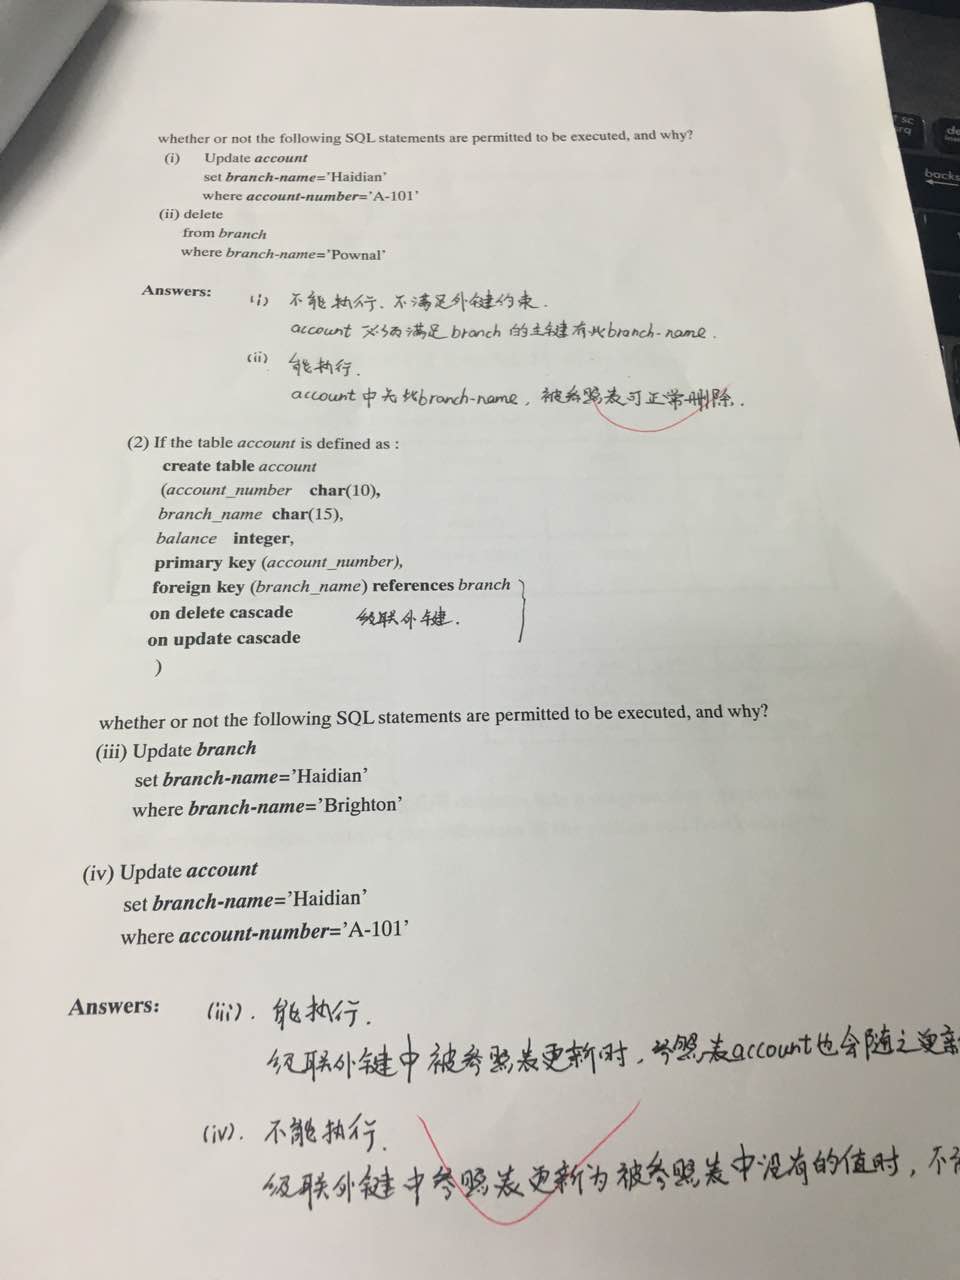 whether or not the following SQL statements are permitted to be executed, and why?
(i) Update account
set branch-name='Haidian'
where account-number='A-101'
(ii) delete
from branch
where branch-name='Pownal'
Answers: (i) 不能执行. 不满足外键约束.
account 必须满足 branch 的主键有此branch-name.
(ii) 能执行.
account中无此branch-name, 被参照表可正常删除.
(2) If the table account is defined as :
create table account
(account_number char(10),
branch_name char(15),
balance integer,
primary key (account_number),
foreign key (branch_name) references branch
on delete cascade 级联外键.
on update cascade
)
whether or not the following SQL statements are permitted to be executed, and why?
(iii) Update branch
set branch-name='Haidian'
where branch-name='Brighton'
(iv) Update account
set branch-name='Haidian'
where account-number='A-101'
Answers: (iii). 能执行.
级联外键中被参照表更新时, 参照表account也会随之更新
(iv). 不能执行.
级联外键中参照表更新为被参照表中没有的值时, 不
sc
rq
backs